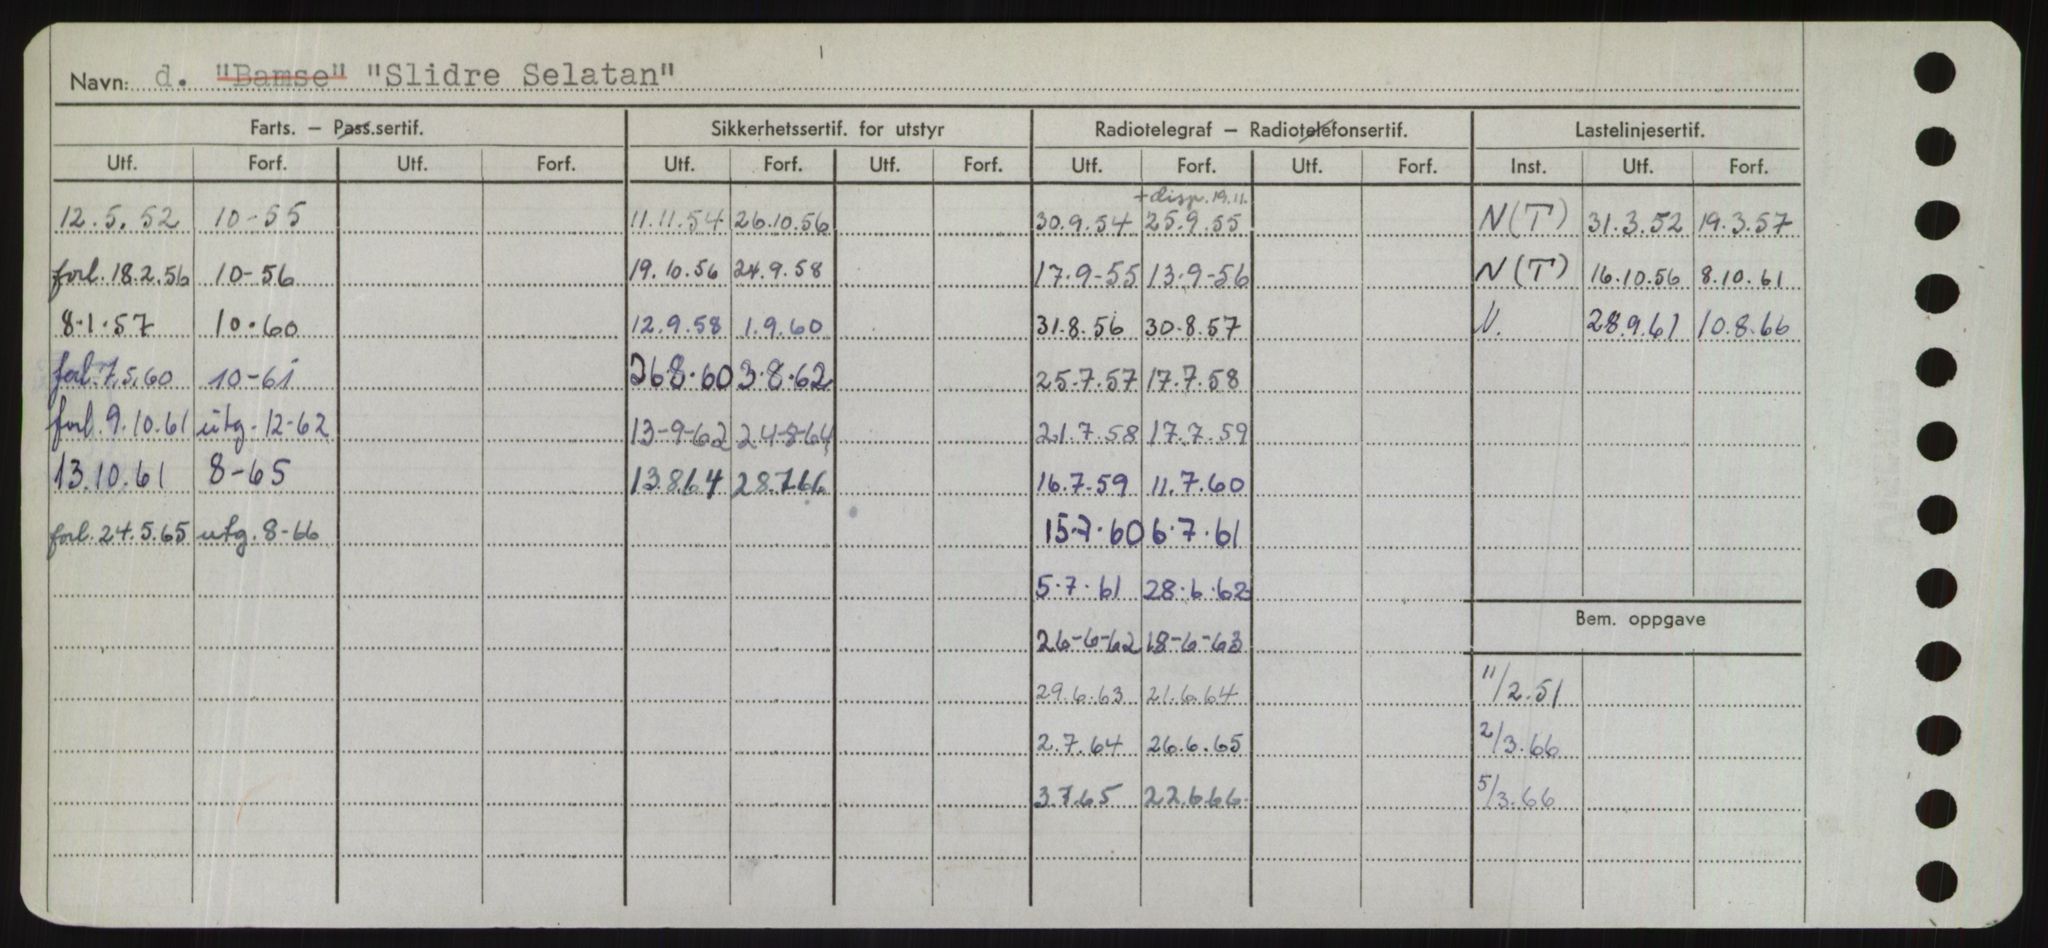 Navn: d. "Bamse" "Slidre Selatan"
Farts. – Pass.sertif. Sikkerhetssertif. for utstyr Radiotelegraf – Radiotelefonsertif. Lastelinjesertif.
Utf. Forf. Utf. Forf. Utf. Forf. Utf. Forf. Utf. Forf. Utf. Forf. Inst. Utf. Forf.
+ disp. 19.11.
12.5.52 10-55 11.11.54 26.10.56 30.9.54 25.9.55 N(T) 31.3.52 19.3.57
forl. 18.2.56 10-56 19.10.56 24.9.58 17.9-55 13-9-56 N(T) 16.10.56 8.10.61
8.1.57 10.60 12.9.58 1.9.60 31.8.56 30.8.57 N. 28.9.61 10.8.66
forl. 7.5.60 10-61 26.8.60 3.8.62 25.7.57 17.7.58
forl. 9.10.61 utg. 12-62 13-9-62 24-8-64 21.7.58 17.7.59
13.10.61 8-65 13.8.64 28.7.66 16.7.59 11.7.60
forl. 24.5.65 utg. 8-66 15.7.60 6.7.61
5.7.61 28.6.62
Bem. oppgave
26-6-62 18-6-63
29.6.63 21.6.64 11/2.51
2.7.64 26.6.65 2/3.66
3.7.65 22.6.66 5/3.66